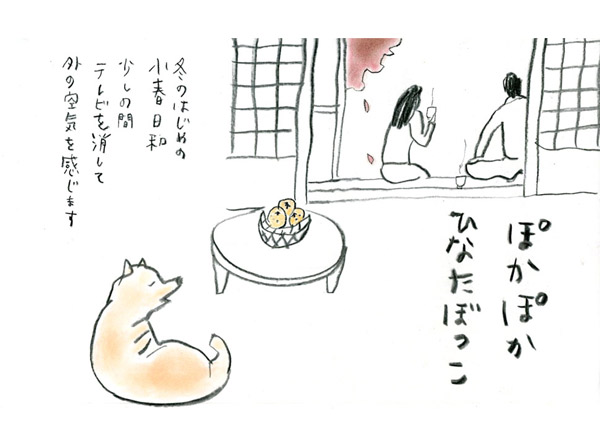 冬のはじめの
小春日和
少しの間
テレビを消して
外の空気を感じます
ぽかぽか
ひなたぼっこ